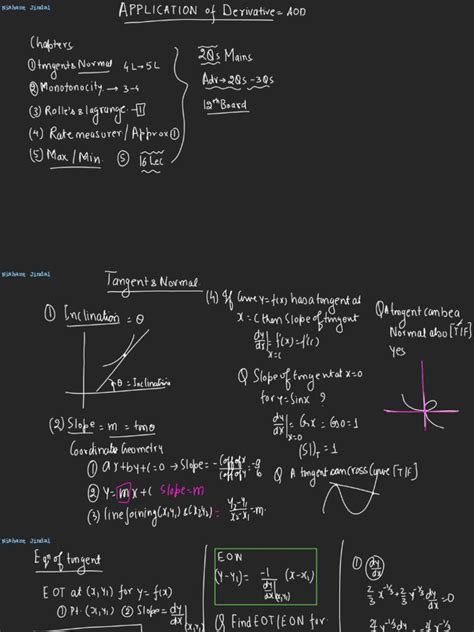 Nishant Jindal
APPLICATION of Derivative = AOD
Chapters
① Tangent & Normal 4L → 5L
② Monotonocity → 3-4
(3) Rolle's & lagrange - 1
(4) Rate measurer / Approx ①
(5) Max / Min. ⑤ 16 Lec
2Qs Mains
Adv → 2Qs - 3Qs
12th Board
Nishant Jindal
Tangent & Normal
① Inclination = θ
θ = Inclination
(2) Slope = m = tanθ
Coordinate Geometry
① ax+by+c=0 → Slope = -(coff of x)/(coff of y) = -a/b
② y = mx+c Slope = m
(3) line joining (x₁,y₁) & (x₂,y₂) = (y₂-y₁)/(x₂-x₁) = m
(4) If Curve y=f(x) has a tangent at
x = c then Slope of tangent
dy/dx|x=c = f'(x) = f'(c)
Q Slope of tangent at x=0
for y = Sinx ?
dy/dx|x=0 = Cosx = Cos0 = 1
(Sl)T = 1
Q A tangent can cross Curve [T/F]
Q A tangent can be a
Normal also [T/F]
yes
Nishant Jindal
Eqn of tangent
EOT at (x₁,y₁) for y = f(x)
① Pt. (x₁,y₁) ② Slope = dy/dx
EON
(y-y₁) = -1/(dy/dx|(x₁,y₁)) (x-x₁)
Q Find EOT/EON for
① (dy/dx)
2/3 x^-1/3 + 2/3 y^-1/3 dy/dx = 0